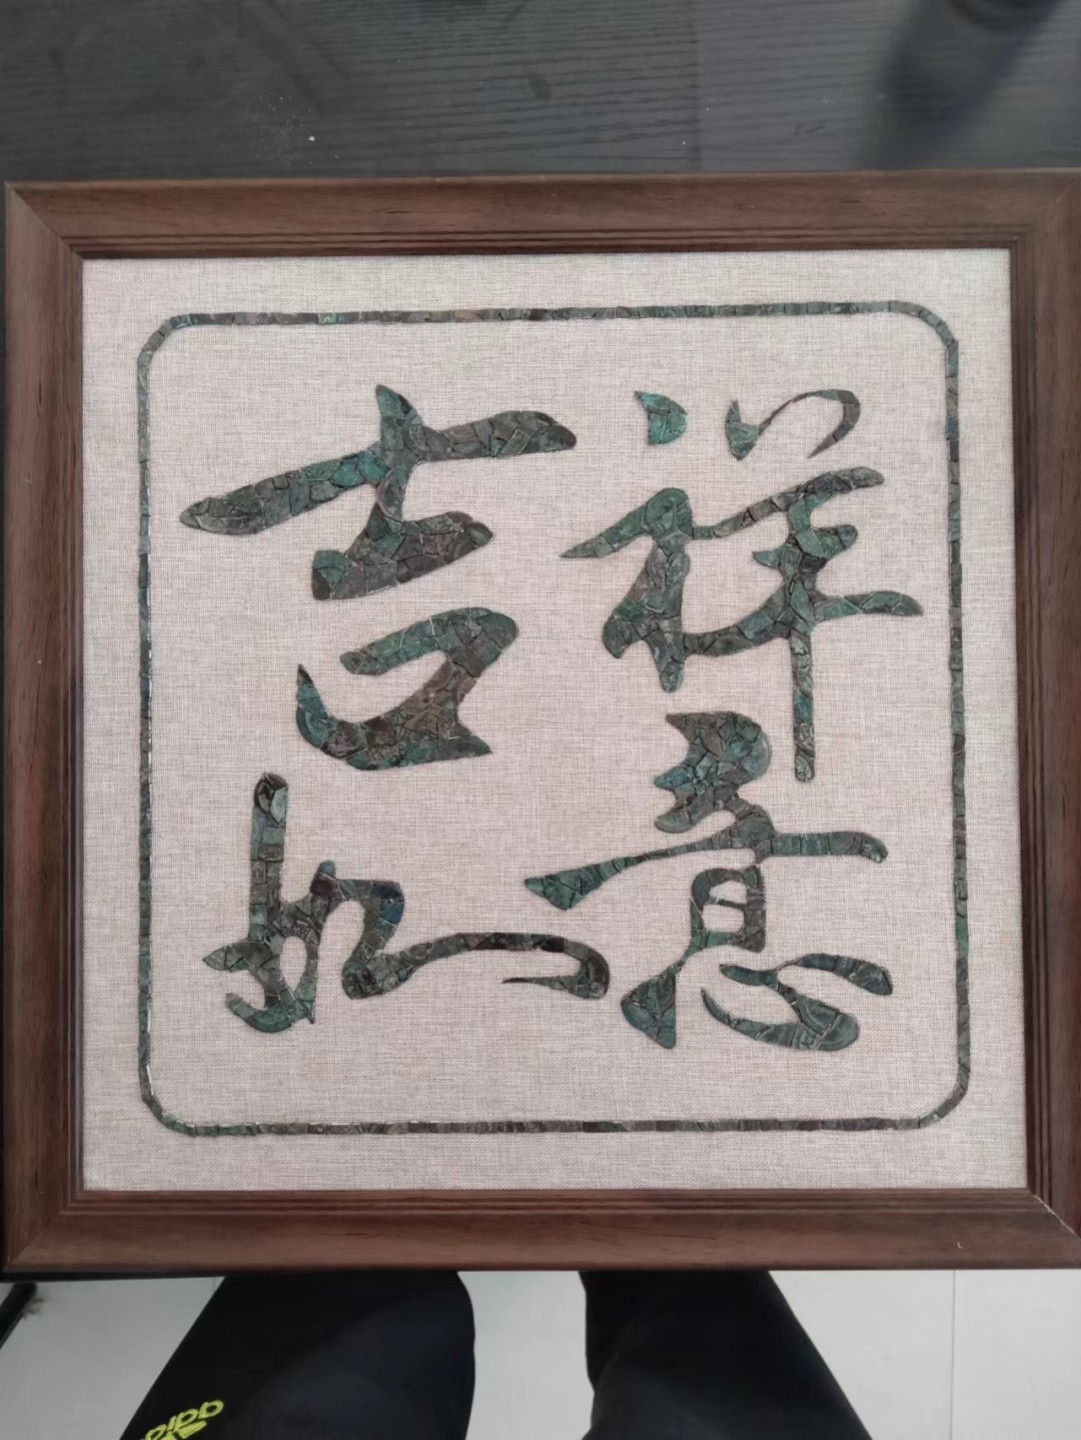 吉祥
如意
adidas